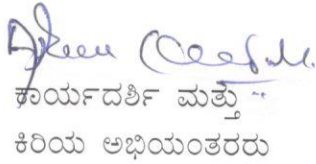 ಕಾರ್ಯದರ್ಶಿ ಮತ್ತು
ಕಿರಿಯ ಅಭಿಯಂತರರು